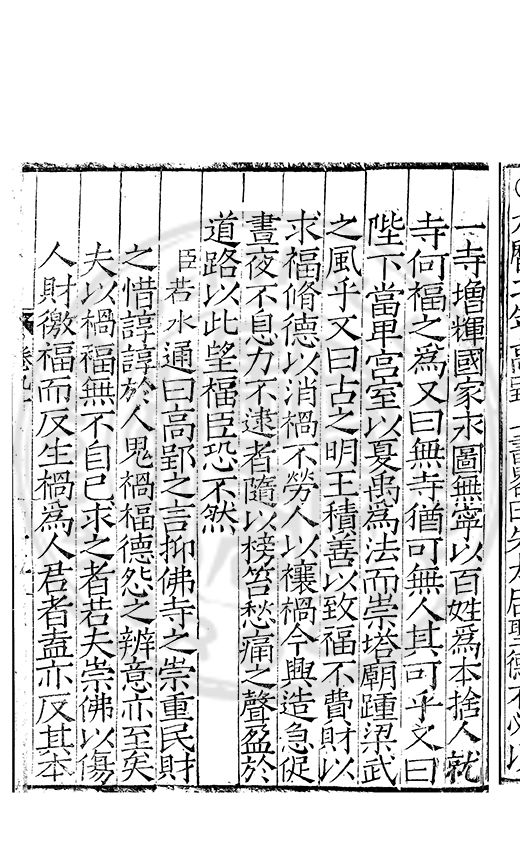 一寺增輝國家永圖無寧以百姓爲本捨人就
寺何福之爲又曰無寺猶可無人其可乎又曰
陛下當卑宮室以夏禹爲法而崇塔廟踵梁武
之風乎又曰古之明王積善以致福不費財以
求福脩德以消禍不勞人以禳禍今興造急促
晝夜不息力不逮者隨以榜笞愁痛之聲盈於
道路以此望福臣恐不然
臣若水通曰高郢之言抑佛寺之崇重民財
之惜諄諄於人鬼禍福德怨之辨意亦至矣
夫以禍福無不自己求之者若夫崇佛以傷
人財徼福而反生禍爲人君者盍亦反其本